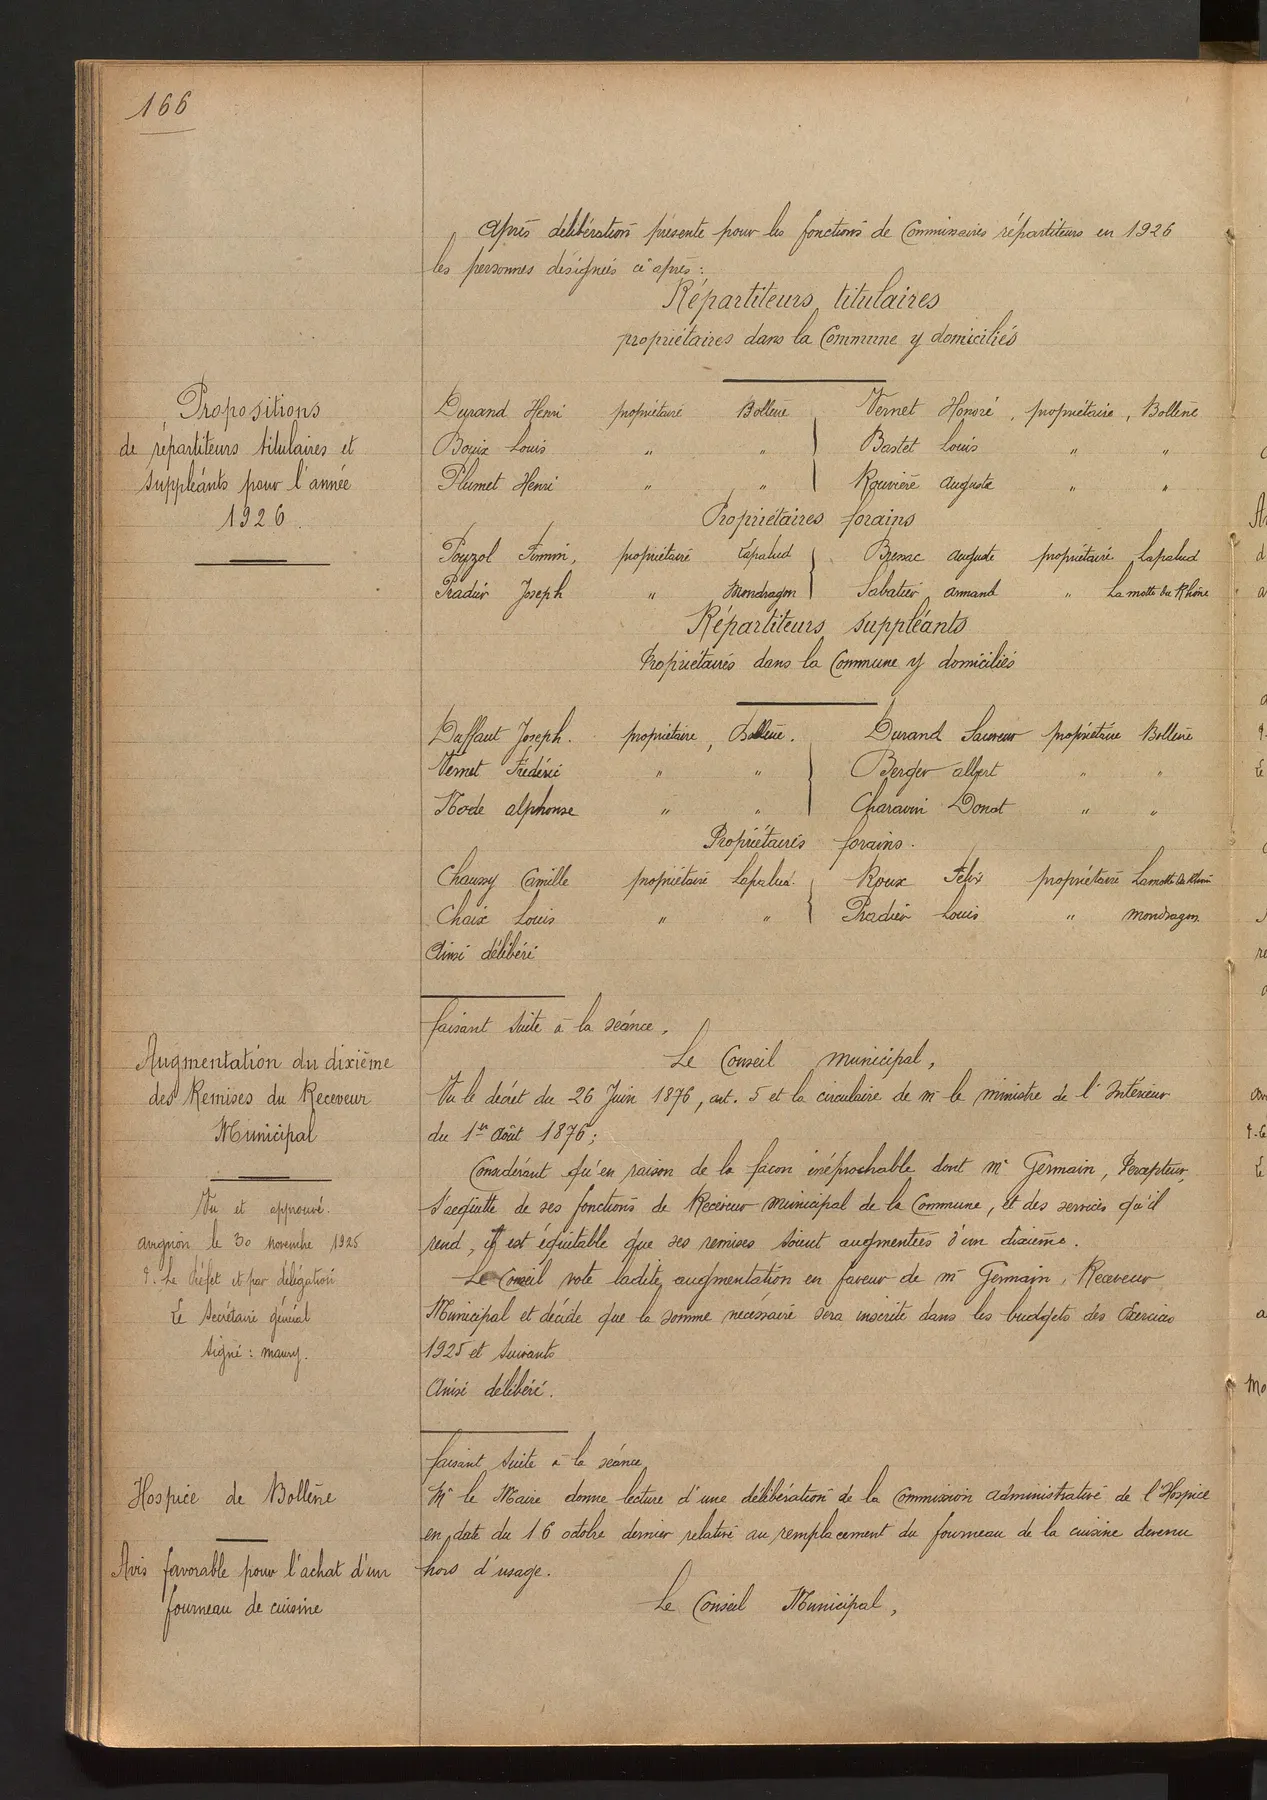 166
Après délibération présente pour les fonctions de Commissaires répartiteurs en 1926
les personnes désignées ci après :
Répartiteurs titulaires
propriétaires dans la Commune y domiciliés
Propositions
de répartiteurs titulaires et
suppléants pour l'année
1926.
Durand Henri propriétaire Bollène Vernet Honoré, propriétaire, Bollène
Bouix Louis " " Bastet Louis " "
Plumet Henri " " Rouvière auguste " "
Propriétaires forains
Pouzol Firmin, propriétaire Lapalud Bressac auguste propriétaire Lapalud
Pradier Joseph " Mondragon Sabatier armand " Lamotte du Rhône
Répartiteurs suppléants
Propriétaires dans la Commune y domiciliés
Daffaut Joseph. propriétaire, Bollène. Durand Sauveur propriétaire Bollène
Vernet Frédéric " " Berger albert " "
Node alphonse " " Charavin Donat " "
Propriétaires forains.
Chaussy Camille propriétaire Lapalud. Roux Félix propriétaire Lamotte du Rhône
Chaix Louis " " Pradier Louis " mondragon
Ainsi délibéré
faisant suite à la séance,
Le Conseil municipal,
Augmentation du dixième
des Remises du Receveur
Municipal
Vu le décret du 26 Juin 1876, art. 5 et la circulaire de mr le ministre de l'Intérieur
du 1er Août 1876;
Considérant qu'en raison de la façon inéprochable dont mr Germain, Percepteur,
s'acquitte de ses fonctions de Receveur municipal de la Commune, et des services qu'il
rend, il est équitable que ses remises soient augmentées d'un dixième.
Le Conseil vote ladite augmentation en faveur de mr Germain, Receveur
Municipal et décide que la somme nécessaire sera inscrite dans les budgets des Exercices
1925 et suivants
Ainsi délibéré.
Vu et approuvé.
avignon le 30 novembre 1925
P. Le Préfet et par délégation
Le Secrétaire général
signé : maury.
faisant suite à la séance
Hospice de Bollène
Avis favorable pour l'achat d'un
fourneau de cuisine
Mr le Maire donne lecture d'une délibération de la Commission administrative de l'Hospice
en date du 16 octobre dernier relative au remplacement du fourneau de la cuisine devenu
hors d'usage.
Le Conseil Municipal,